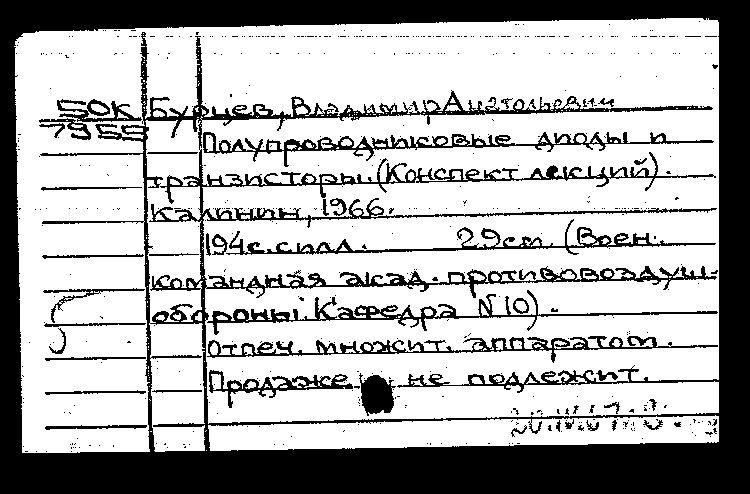 50К Бурцев, Владимир Анатольевич
7955
Полупроводниковые диоды и
транзисторы. (Конспект лекций).
Калинин, 1966.
194с.силл. 29см. (Воен.
командная акад. противовоздуш-
обороны. Кафедра N10).
Отпеч. множит. аппаратом.
Продаже не подлежит.